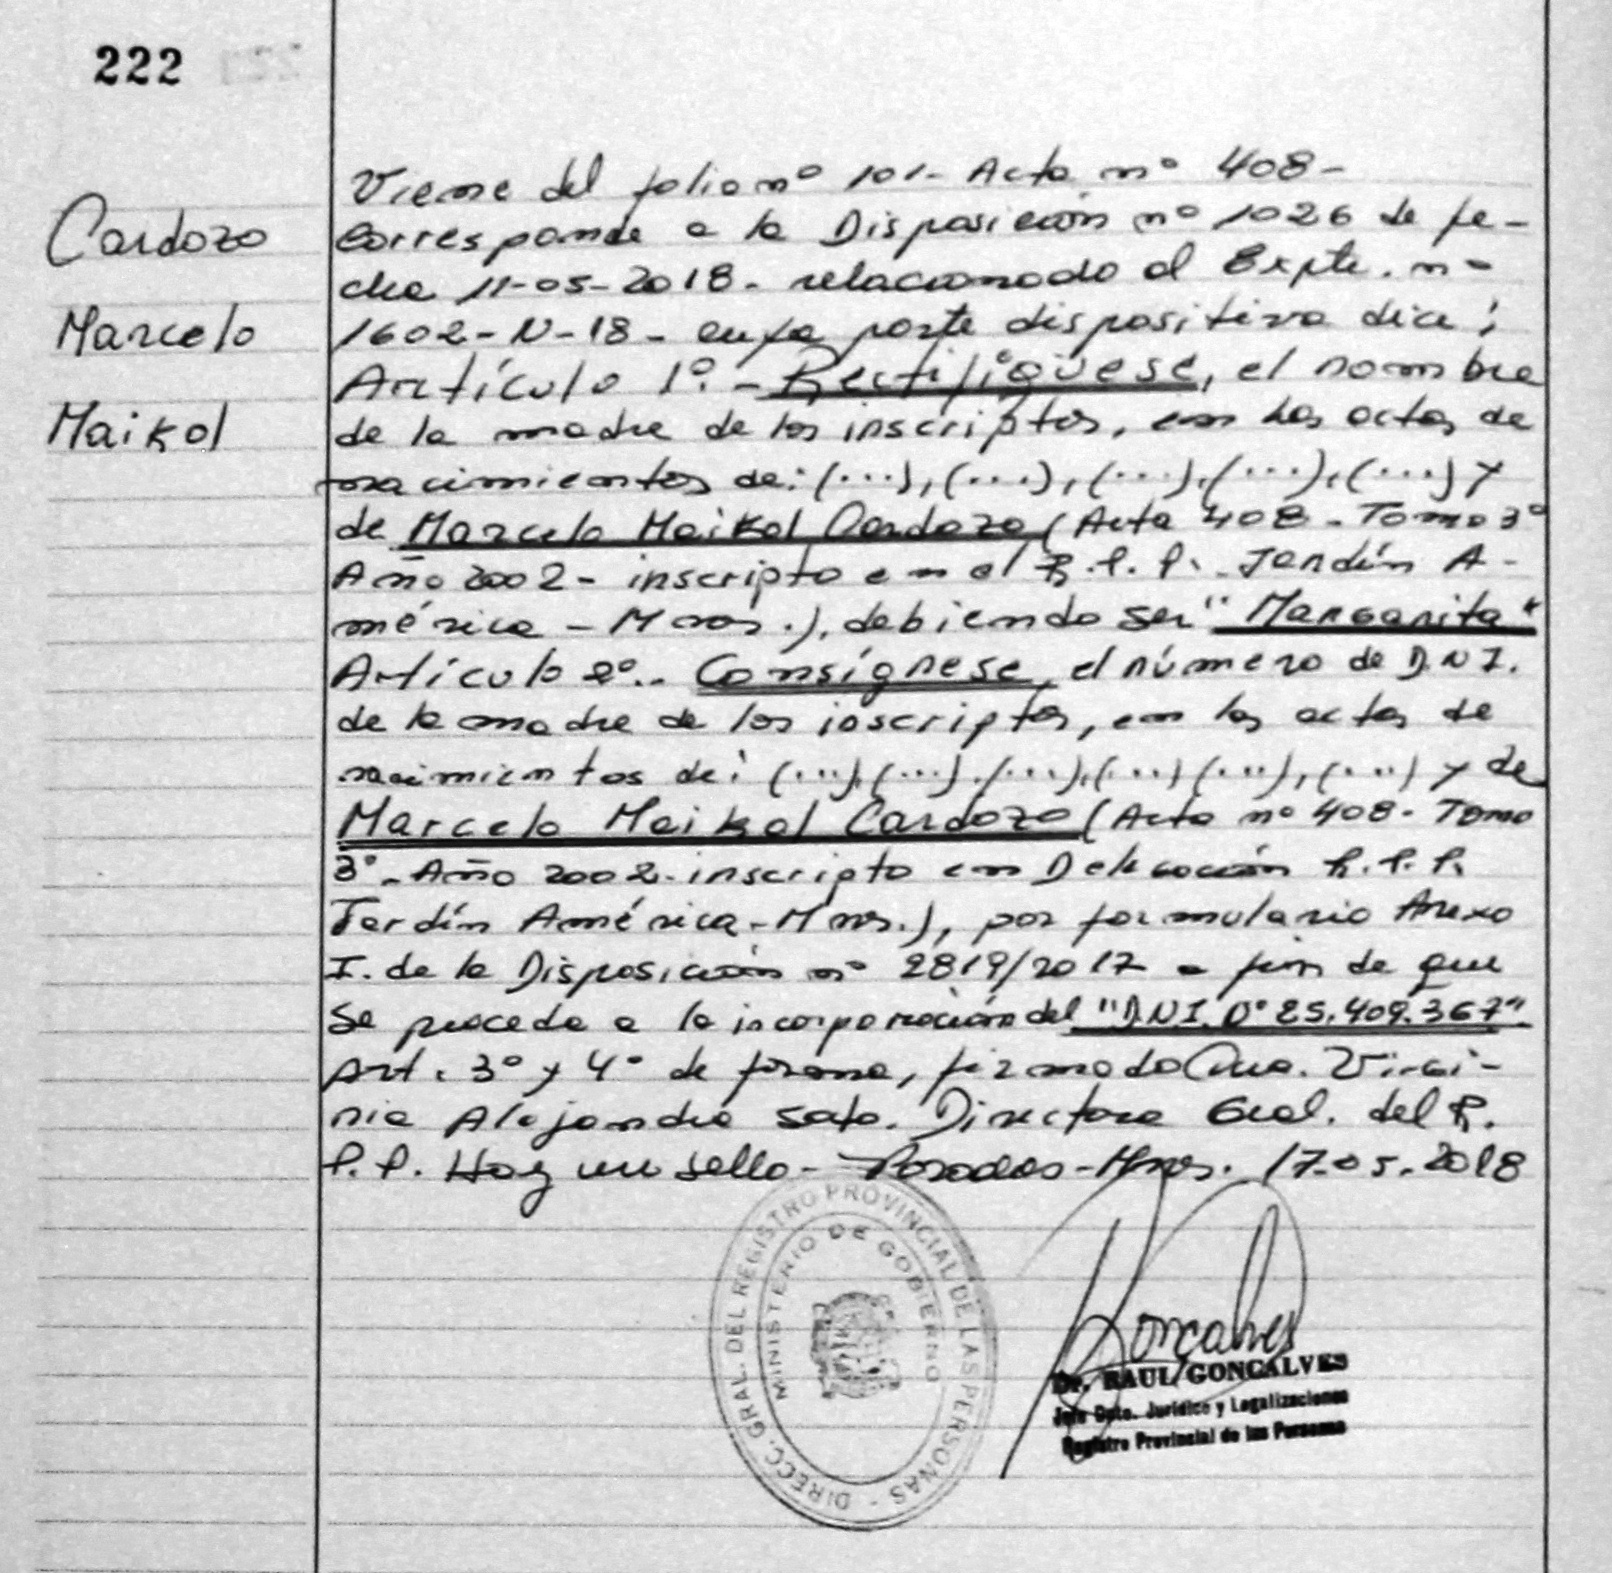 222
Cardozo
Marcelo
Maikol
Viene del folio nº 101- Acta nº 408-
Corresponde a la Disposición nº 1026 de fe-
cha 11-05-2018- relacionado al Expte. nº
1602-N-18- cuya parte dispositiva dice:
Artículo 1º.- Rectifíqüese, el nombre
de la madre de los inscriptos, en las actas de
nacimientos de: (...), (...), (...), (...), (...) y
de Marcelo Maikol Cardozo (Acta 408- Tomo 3º
Año 2002- inscripto en el R.P.P. Jardín A-
mérica - Mnes.), debiendo ser "Margarita"
Artículo 2º.. Consígnese, el número de D.N.I.
de la madre de los inscriptos, en las actas de
nacimientos de: (...), (...), (...), (...) (...), (...) y de
Marcelo Maikol Cardozo (Acta nº 408- Tomo
3º- Año 2002- inscripto en Delegación R.P.P.
Jardín América-Mnes.), por formulario Anexo
I. de la Disposición nº 2819/2017 a fin de que
se proceda a la incorporación del "D.N.I. Nº 25.409.367".
Art. 3º y 4º de forma, firmado Dra. Virgi-
nia Alejandra Sato. Directora Gral. del R.
P.P. Hay un sello- Posadas-Mnes. 17-05-2018
DIRECC. GRAL. DEL REGISTRO PROVINCIAL DE LAS PERSONAS -
MINISTERIO DE GOBIERNO
Goncalves
Dr. RAUL GONCALVES
Jefe Dpto. Jurídico y Legalizaciones
Registro Provincial de las Personas